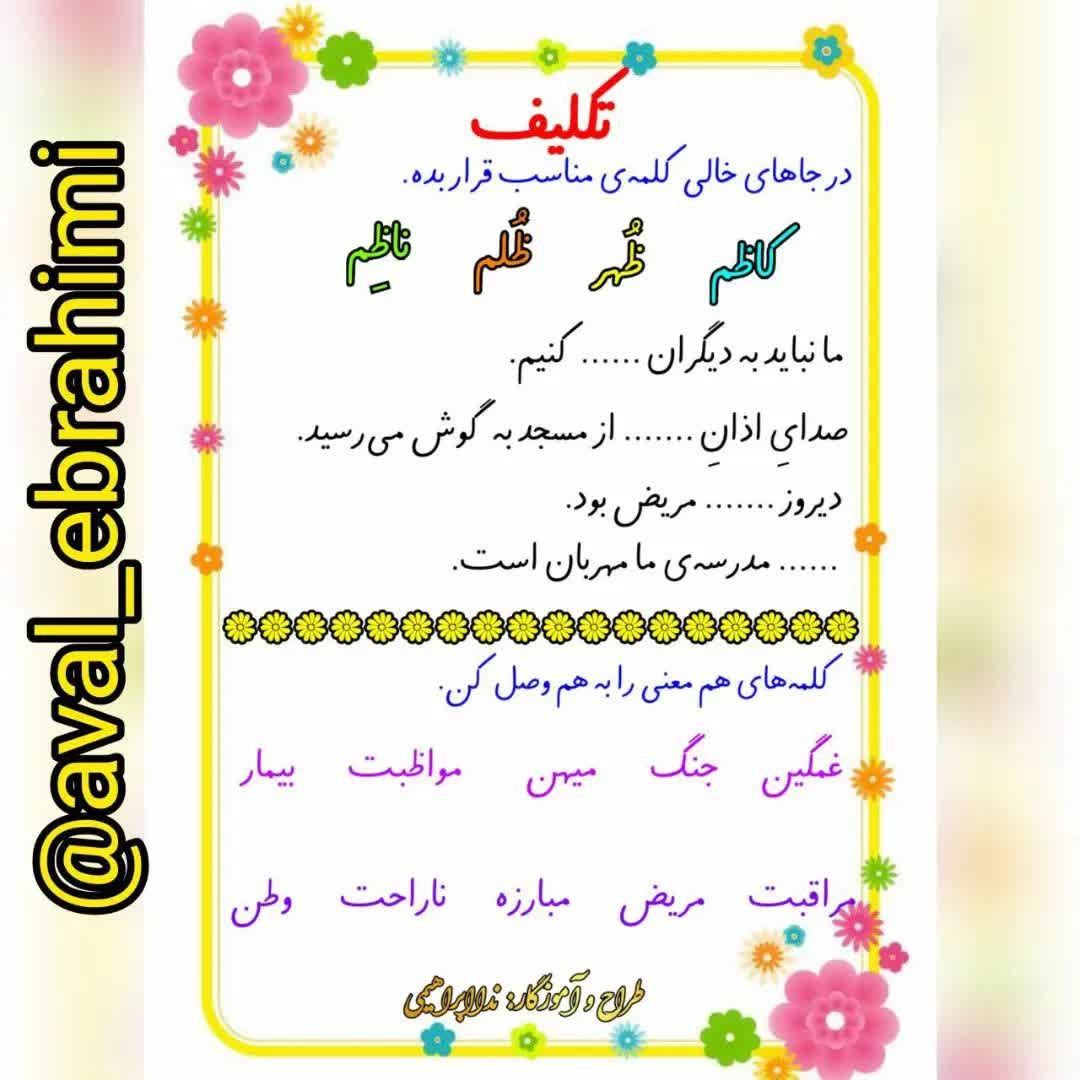 @aval_ebrahimi
تکلیف
در جاهای خالی کلمه‌ی مناسب قرار بده.
کاظم ظُهر ظُلم ناظِمِ
ما نباید به دیگران ...... کنیم.
صدایِ اذانِ ....... از مسجد به گوش می‌رسید.
دیروز ....... مریض بود.
...... مدرسه‌ی ما مهربان است.
کلمه‌های هم معنی را به هم وصل کن.
غمگین جنگ میهن مواظبت بیمار
مراقبت مریض مبارزه ناراحت وطن
طراح و آموزگار: ندا ابراهیمی